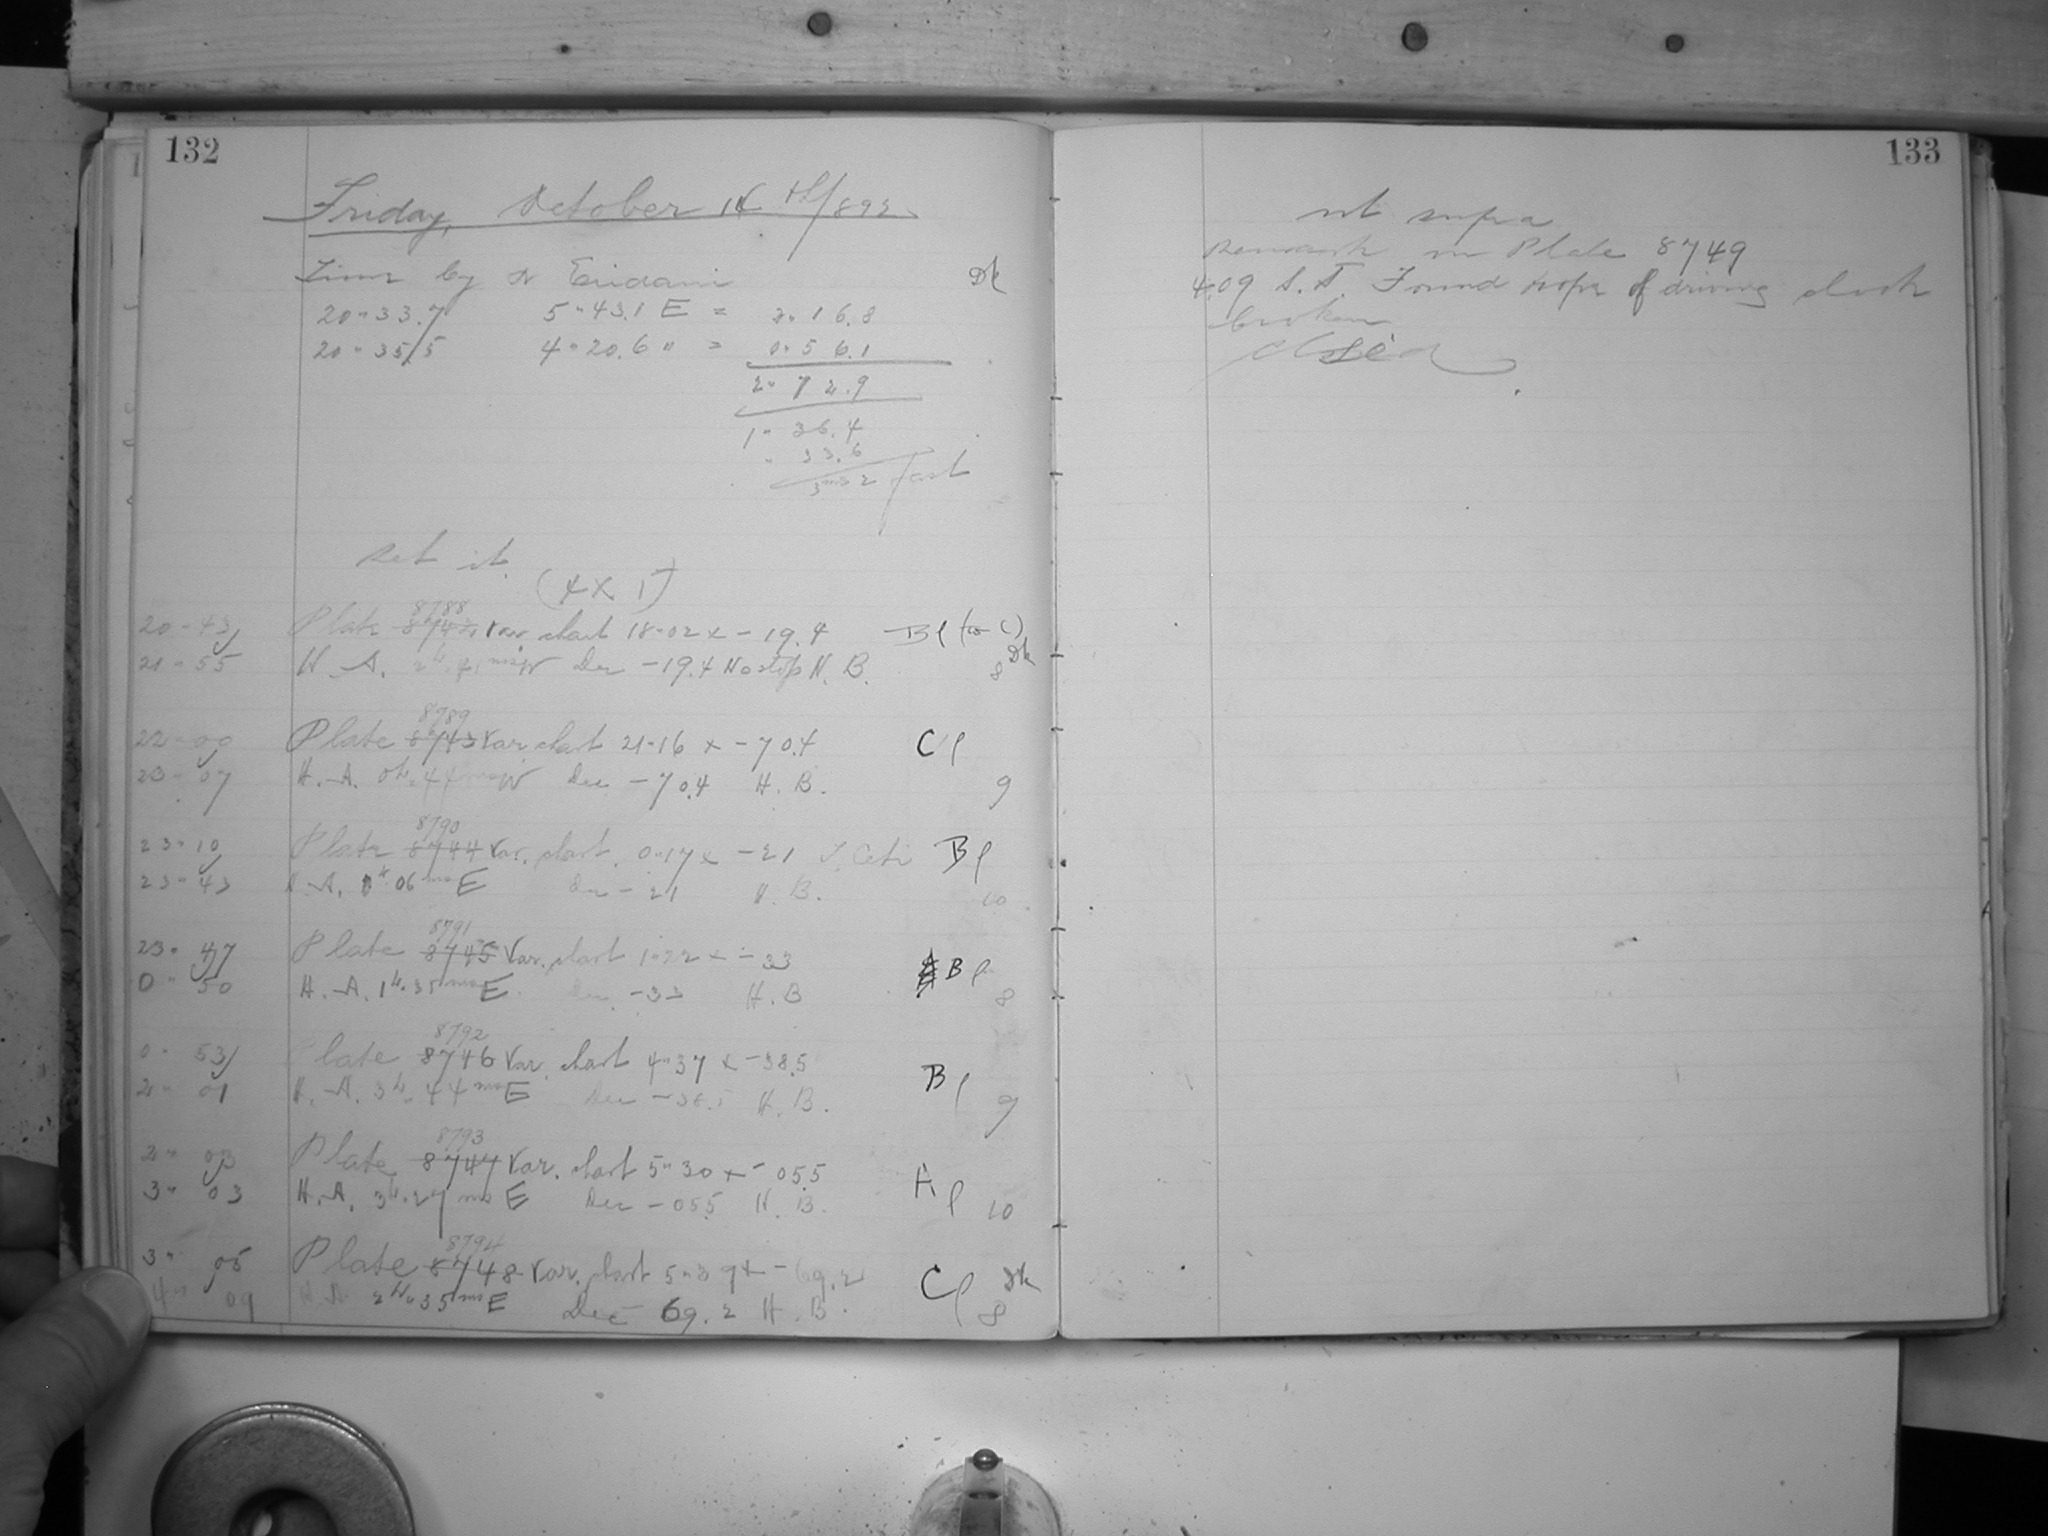 132
Friday, October 14th/892
Time by α Eridani Dk
20 " 33.7 5 " 43.1 E = 2 " 16.8
20 " 35.5 4 " 20.6 " = 0 " 56.1
2 " 72.9
1 " 36.4
" 33.6
3ms 2 fast
Set it.
(4 X 1)
8788
20 - 43 Plate 8742 Var. chart 18-02 x - 19.4 Bf (to C)
21 - 55 H. A. W Dec - 19.4 No stop H. B. 8 Dk
8789
22 - 00 Plate 8743 Var. chart 21-16 x - 70.4 Cf
23 - 07 H. A. 0h. 44ms W Dec - 70.4 H. B. 9
8790
23 - 10 Plate 8744 Var. chart 0-17 x - 21 Ceti Bf
23 - 43 H. A. 1h. 06ms E Dec - 21 H. B. 10
8791
23 - 47 Plate 8745 Var. chart 1-22 x - 33 Bf
0 - 50 H. A. 1h. 35ms E Dec - 33 H. B 8
8792
0 - 53 Plate 8746 Var. chart 4-37 x - 38.5 Bf
2 - 01 H. A. 3h. 44ms E Dec - 38.5 H. B. 9
8793
2 " 03 Plate 8747 Var. chart 5 " 30 x - 05.5 Af
3 " 03 H. A. 3h. 27ms E Dec - 05.5 H. B. 10
8794
3 " 05 Plate 8748 Var. chart 5 " 39 x - 69.2 Cf Dk
4 " 09 H. A. 2h. 35ms E Dec - 69.2 H. B. 8
133
ut supra
Remark on Plate 8749
4.09 S. T. Found rope of driving clock
broken
Closed